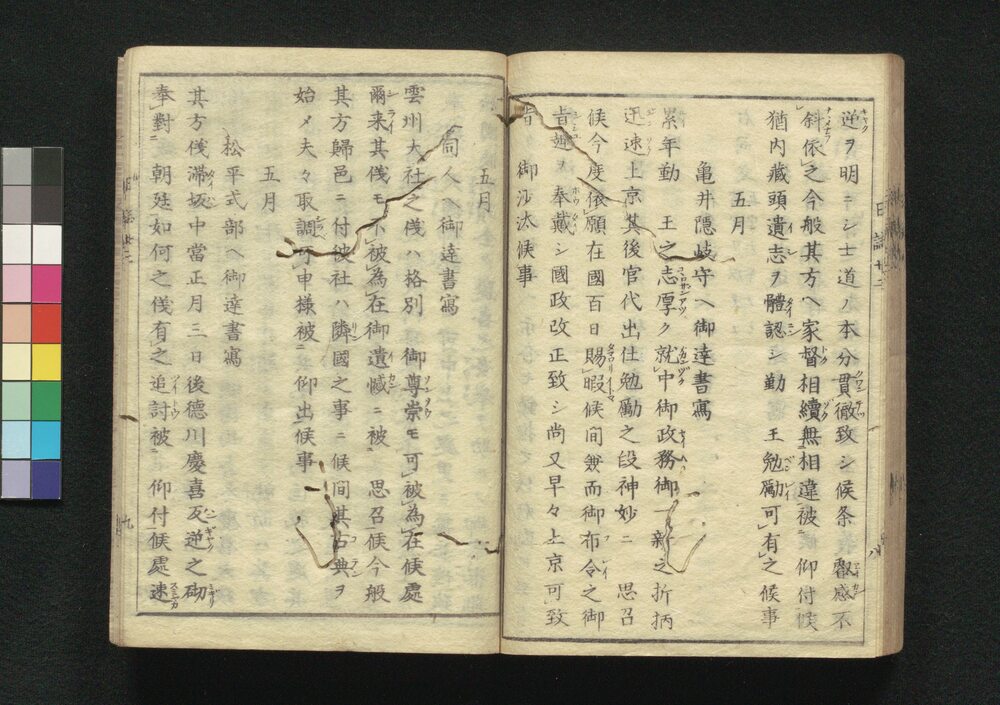 逆ヲ明ニシ士道ノ本分貫徹致シ候条叡感不
斜依之今般其方ヘ家督相續無相違被　仰付候
猶内藏頭遺志ヲ體認シ勤　王勉勵可有之候事
亀井隠岐守ヘ御達書寫
五月
累年勤　王之志厚ク就中御政務御一新之折柄
迅速上京其後官代出仕勉勵之段神妙ニ　思召
候今度依願在國百日賜暇候間兼而御布令之御
旨趣ヲ奉戴シ國政改正致シ尚又早々上京可致
旨　御沙汰候事
五月
同人ヘ御達書寫
雲州大社之儀ハ格別　御尊崇モ可被為在候處
爾来其儀モ不被為在御遺憾ニ被　思召候今般
其方歸邑ニ付彼社ハ隣國之事ニ候間其古典ヲ
始メ夫々取調可申様被　仰出候事
五月
松平式部ヘ御達書寫
其方儀滞坂中當正月三日後德川慶喜反逆之砌
奉對　朝廷如何之儀有之追討被　仰付候處速
九